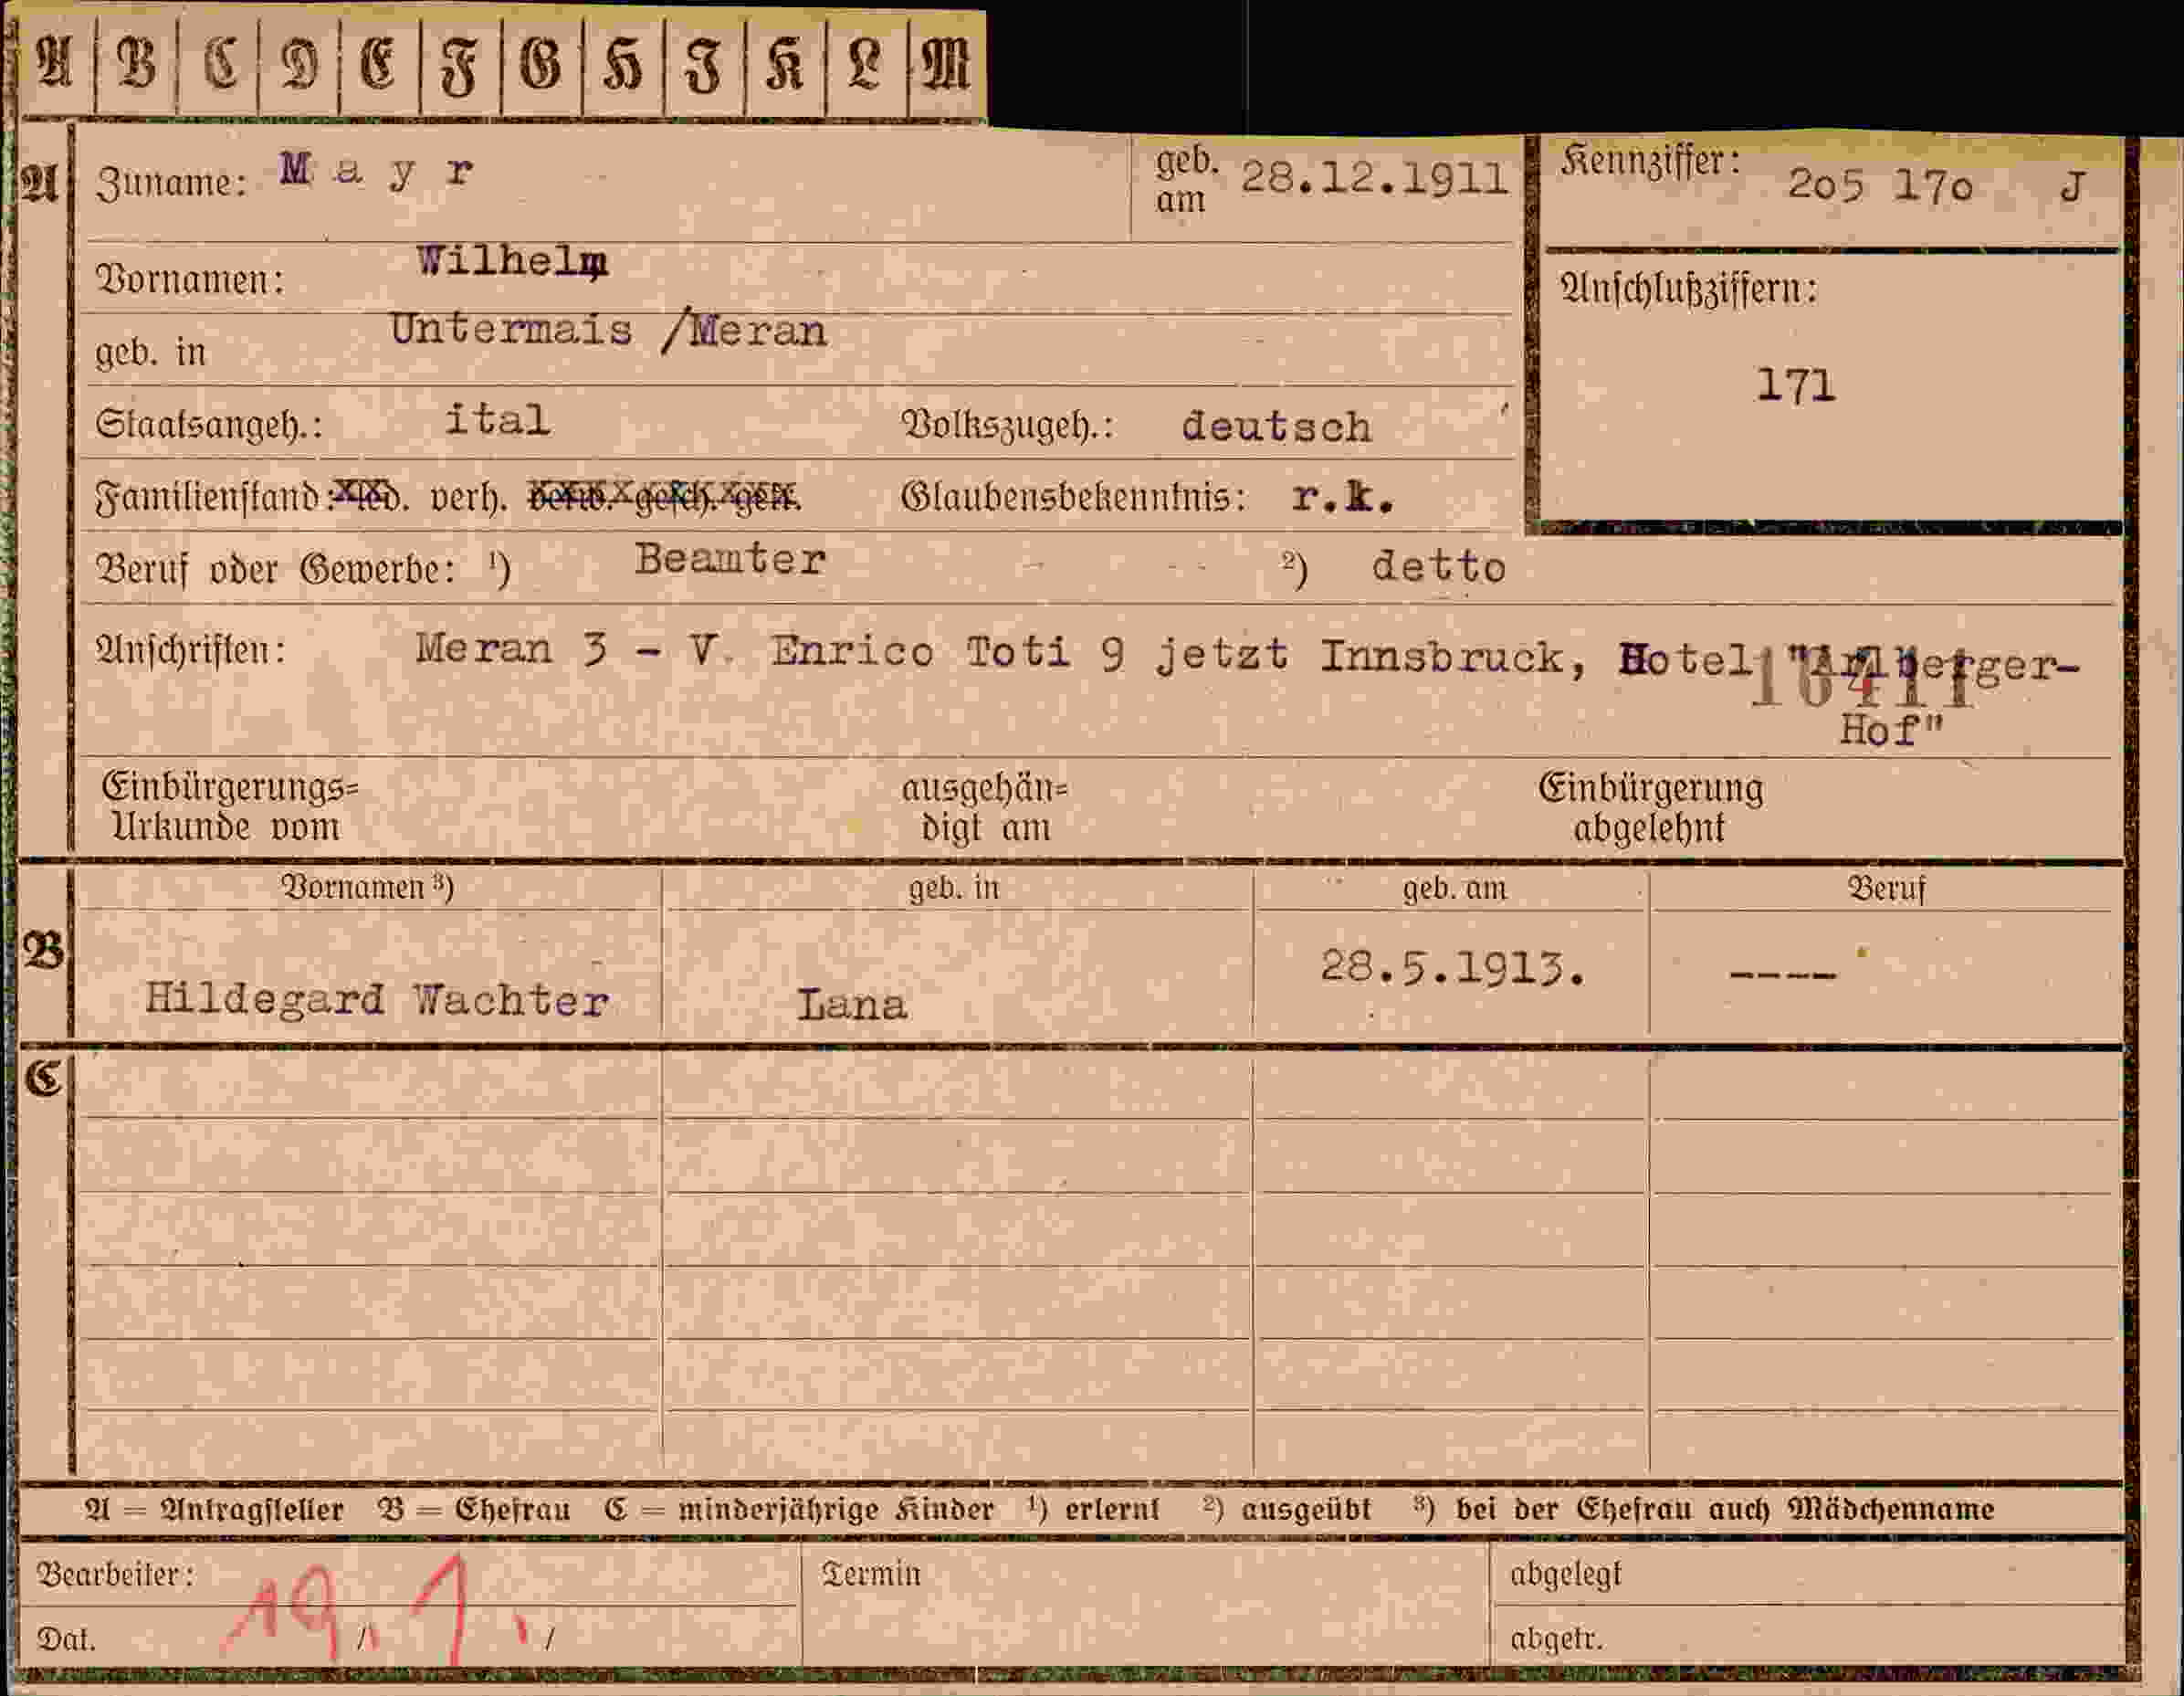 A B C D E F G H I K L M
A Zuname: Mayr geb. am 28.12.1911 Kennziffer: 2o5 17o J
Vornamen: Wilhelm
Anschlußziffern:
geb. in Untermais /Meran
171
Staatsangeh.: ital Volkszugeh.: deutsch
Familienstand: led. verh. verw. gesch. getr. Glaubensbekenntnis: r.k.
Beruf oder Gewerbe: ¹) Beamter ²) detto
Anschriften: Meran 3 - V. Enrico Toti 9 jetzt Innsbruck, Hotel "Arlberger-
Hof"
Einbürgerungs= ausgehän= Einbürgerung
Urkunde vom digt am abgelehnt
Vornamen ³) geb. in geb. am Beruf
B Hildegard Wachter Lana 28.5.1913. ----
C
A = Antragsteller B = Ehefrau C = minderjährige Kinder ¹) erlernt ²) ausgeübt ³) bei der Ehefrau auch Mädchenname
Bearbeiter: Termin abgelegt
Dat. 19. 1. abgetr.